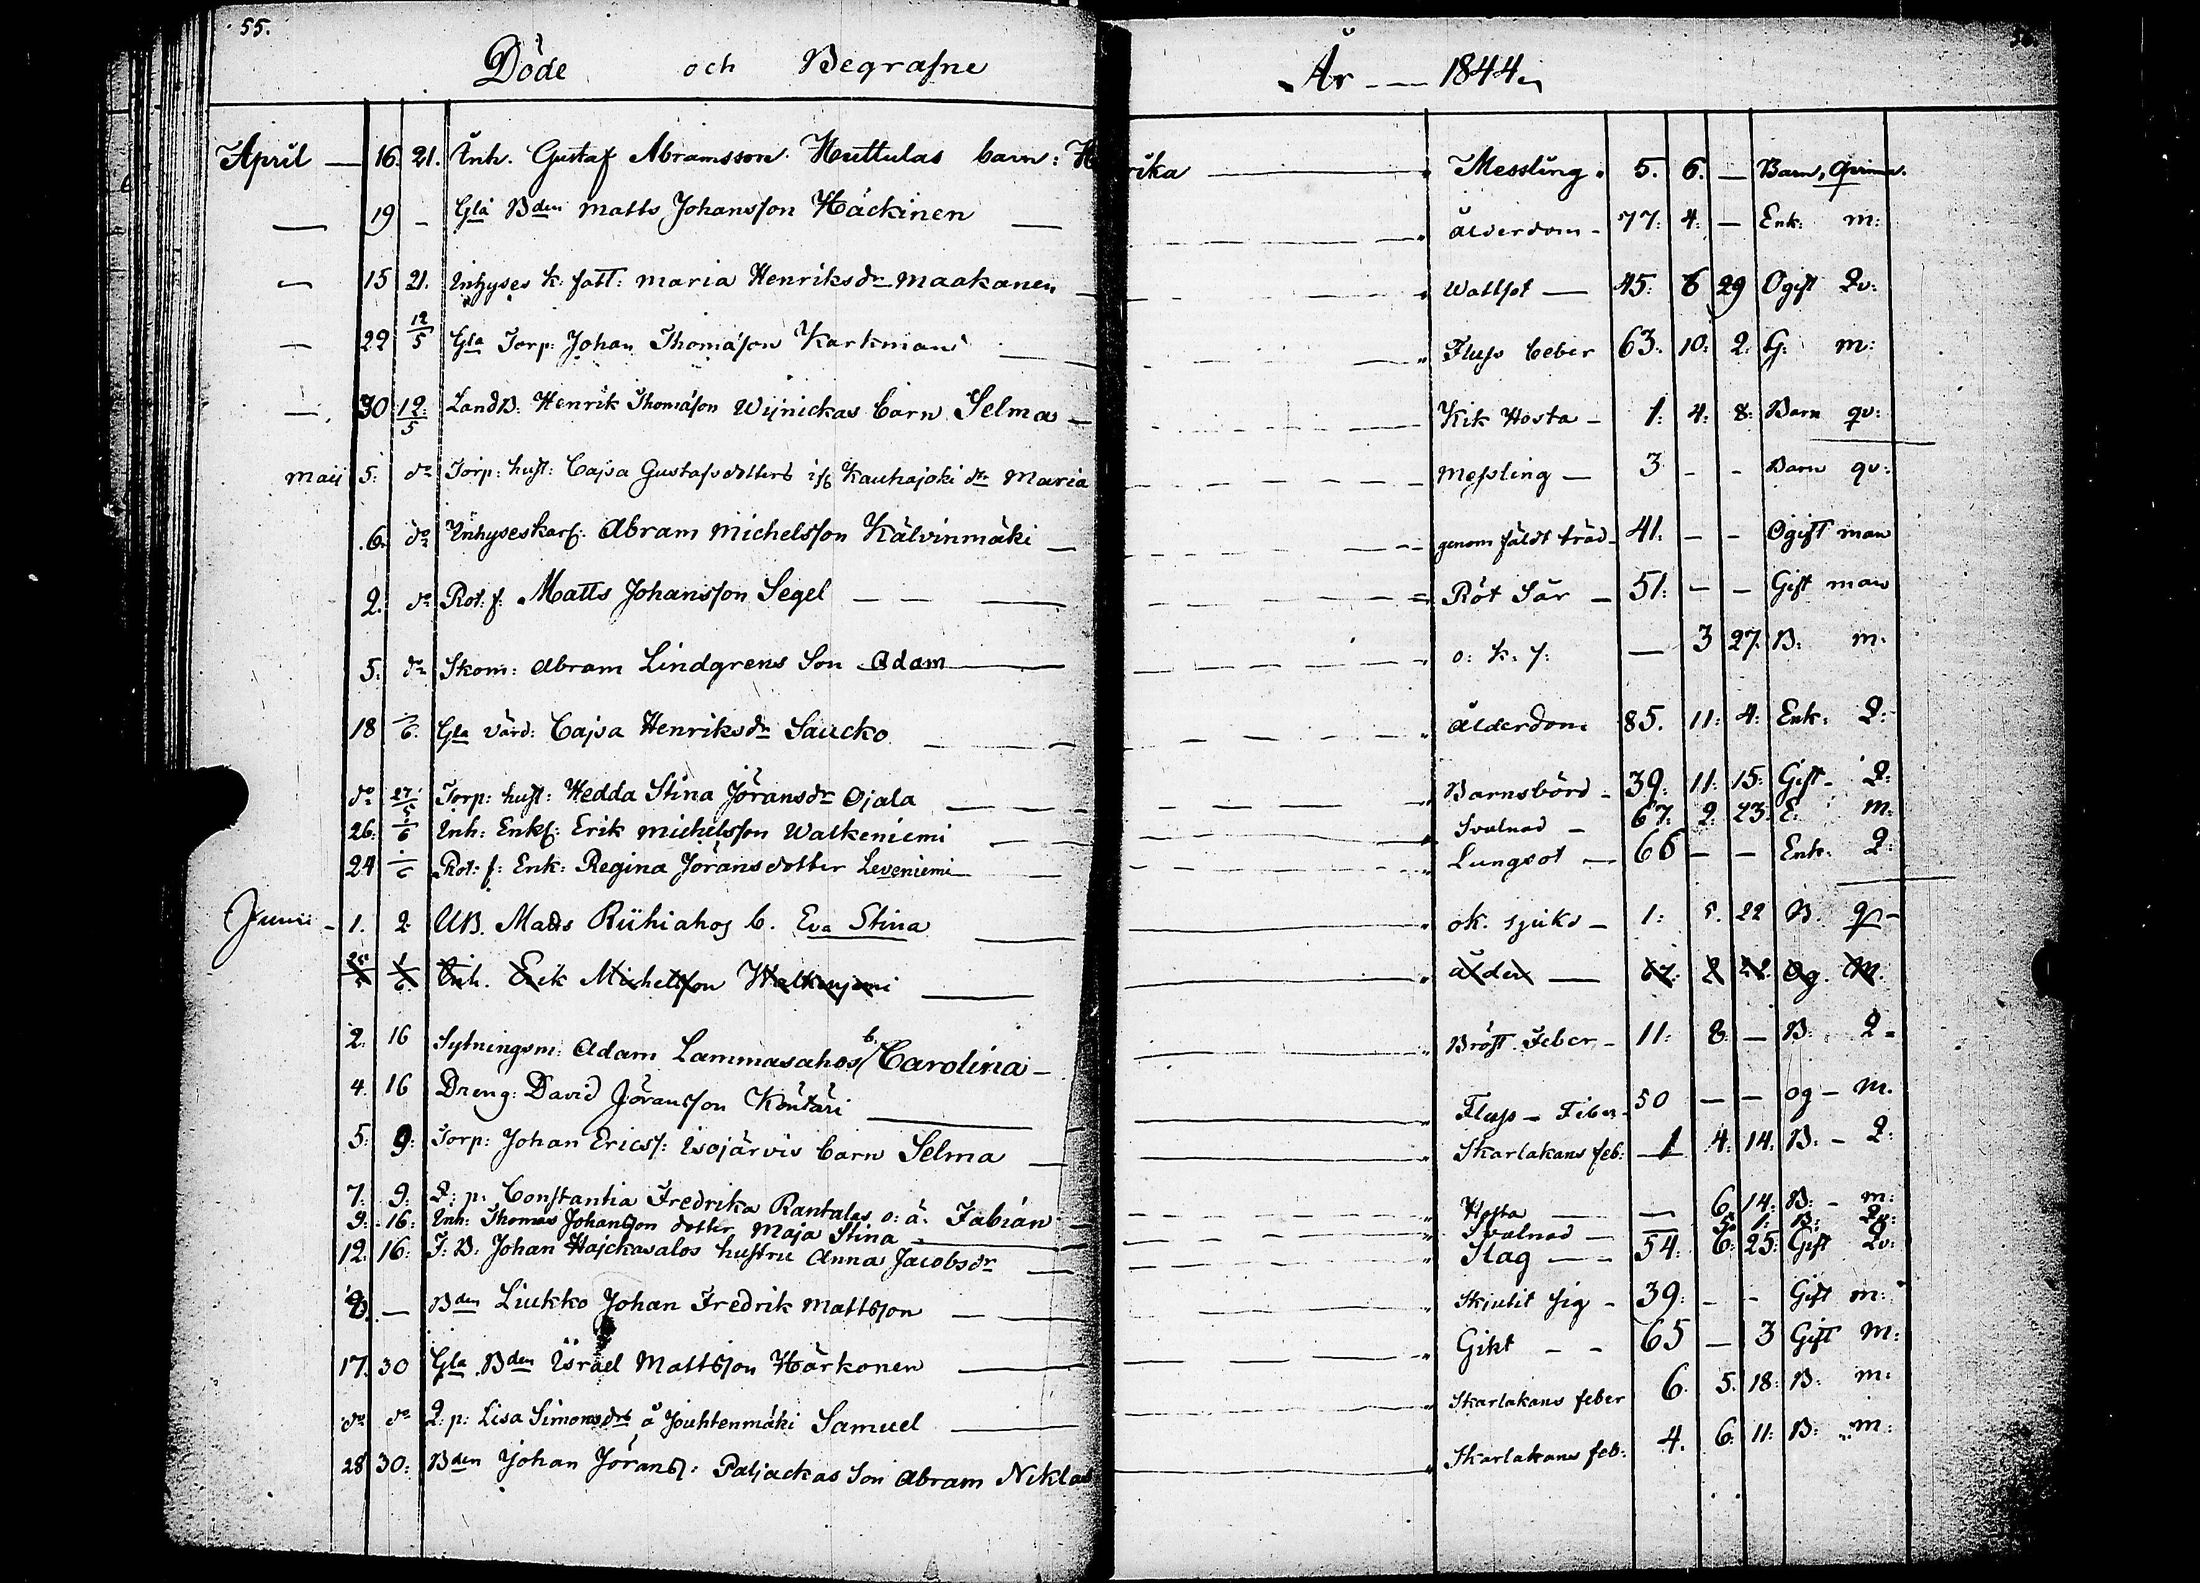 55.
Döde och Begrafne År — 1844
April — 16. 21. Inh. Gustaf Abramsson Huttulas barn: H rika — Messling. 5. 6. — Barn, Qvinn.
— 19 - Gla Bden Matts Johansson Häckinen — Ålderdom - 77: 4: — Enk: m:
— 15 21. Inhyses k: fatt: Maria Henriksdr Maakanen — Wattsot — 45: 6 29 Ogift Qv:
— 22 12/5 Gla Torp: Johan Thomasson Karkmans — Fluss feber 63: 10: 2: G: m:
— 30 12:/5 LandB: Henrik Thomasson Wijnickas barn Selma — Kik Hosta - 1: 4: 8: Barn qv:
Maij 5: do Torp: hust: Cajsa Gustafsdotters i/f Kauhajoki dr Maria — Messling — 3 - - Barn qv:
6. do Inhyseskarl: Abram Michelsson Kälvinmäki — genom fäldt träd - 41. - - Ogift man
2. do Rot: f: Matts Johansson Segel — Röt Sår — 51: - - Gift man
5: do Skom: Abram Lindgrens Son Adam — o: k: s: — 3 27. B: m.
18 -/6. Gla värd: Cajsa Henriksdr Saucko — Ålderdom 85. 11: 4: Enk: Q:
do 27/5 Torp: hust: Hedda Stina Jöransdr Ojala — Barnsbörd - 39: 11: 15: Gift - Q:
26: -/6 Inh: Enkl: Erik Michelsson Walkeniemi — Svalnad - 67: 2: 23: E: m:
24 Rot: f: Enk: Regina Jöransdotter Leveniemi — Lungsot — 66 — — Enk: Q:
Junii - 1. 2. UB. Matts Riihiahos b. Eva Stina — ok. sjukd - 1: 5. 22 B. q -
Inh. Erik Michelsson Walkenjemi — ålder — 67: 2 28. Og. M.
2. 16 Sytningsm: Adam Lammasahos b. Carolina — Bröst Feber - 11: 8: — B: Q -
4. 16 Dreng: David Jöransson Köntäri — Fluss - Feber - 50 — — og - m.
5: 9: Torp: Johan Ericss: Isojärvis barn Selma — Skarlakans feb: - 1 4: 14: B: - Q:
7: 9: Q: p: Constantia Fredrika Rantalas o: ä: Fabian — Hosta — — 6 14: B: - m:
9: 16: Inh: Thomas Johansson dotter Maja Stina — Svalnad — — 1: B: Qv:
12. 16: T: B: Johan Hajckasalos hustru Anna Jacobsdr — Slag — - 54: 6: 25: Gift Qv:
8. — Bden Liukko Johan Fredrik Mattsson — Skjutit sig - 39: - - Gift m:
17. 30 Gla Bden Israel Mattsson Härkonen — Gikt - - 65 — 3 Gift m:
do do Q: p: Lisa Simonsdrs å Jouhtenmäki Samuel — Skarlakans feber 6. 5. 18: B: m:
28 30: Bden Johan Jöranss: Paljackas Son Abram Niklas — Skarlakans feb: 4. 6: 11: B: m: